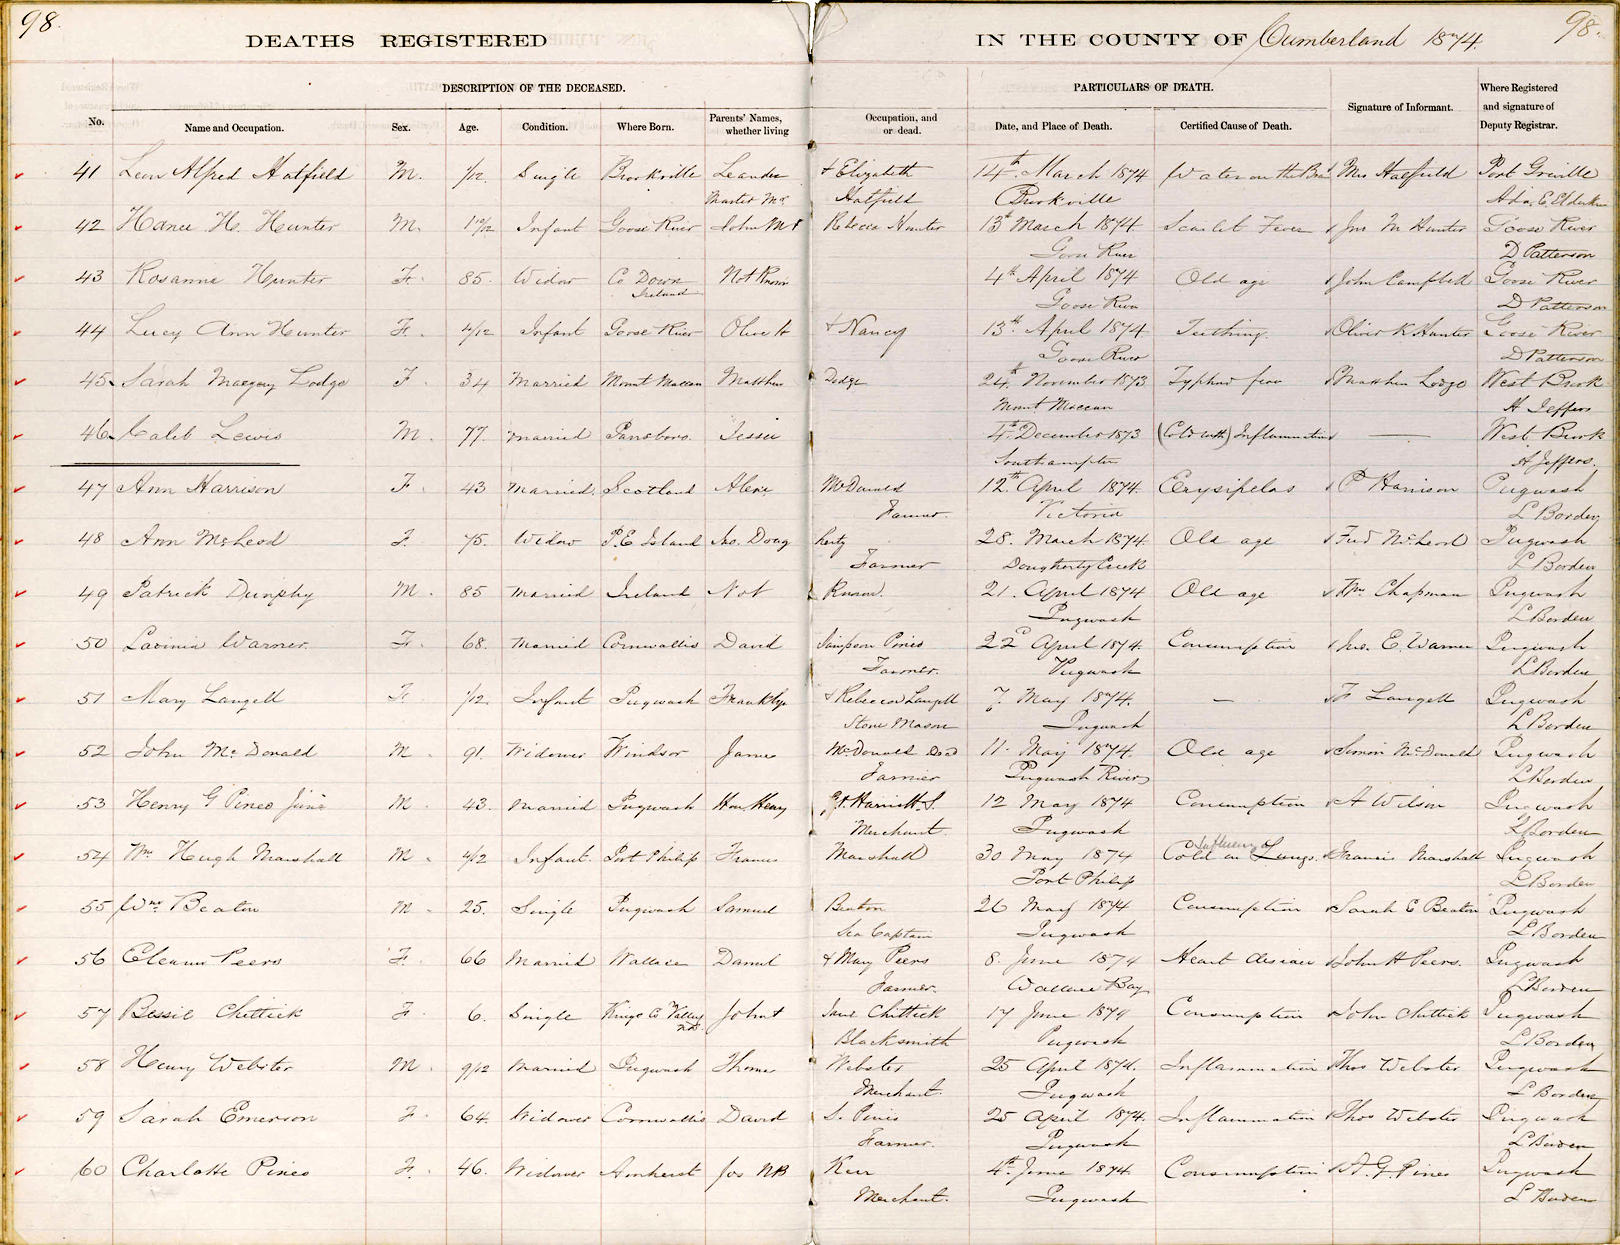 98.
98.
DEATHS REGISTERED IN THE COUNTY OF Cumberland 1874.
DESCRIPTION OF THE DECEASED. PARTICULARS OF DEATH. Signature of Informant. Where Registered and signature of Deputy Registrar.
No. Name and Occupation. Sex. Age. Condition. Where Born. Parents' Names, whether living Occupation, and or dead. Date, and Place of Death. Certified Cause of Death.
41 Leon Alfred Hatfield M. 1/12 Single Brookville Leander + Elizabeth 14th March 1874 Water on the Brain Mrs Hatfield Port Greville
Hatfield Brookville Ada E. Elderkin
Master Mr
42 Hance H. Hunter M. 1 10/12 Infant Goose River John M + Rebecca Hunter 13th March 1874 Scarlet Fever Jno M Hunter Goose River
Goose River D Patterson
43 Rosanna Hunter F. 85. Widow Co Down Not Known 4th April 1874 Old age John Campbell Goose River
Ireland Goose River D Patterson
44 Lucy Ann Hunter F. 4/12 Infant Goose River Oliver K + Nancy 13th April 1874 Teething. Oliver K Hunter Goose River
Goose River D Patterson
45 Sarah Margery Lodge F. 34 Married Mount Maccan Matthew Dodge 24th November 1873 Typhoid fever Matthew Lodge West Brook
Mount Maccan H Jeffers
46 Caleb Lewis M. 77. Married Parsboro. Jesse 4th December 1873 (Cold with) Inflammation — West Brook
Southampton H Jeffers.
47 Ann Harrison F. 43 Married. Scotland Alexr McDonald 12th April 1874. Erysipelas P Harrison Pugwash
Farmer. Victoria L Borden
48 Ann McLeod F. 75. Widow P.E Island Jno. Doug herty 28. March 1874. Old age Fred McLeod Pugwash
Farmer Dougherty Creek L Borden
49 Patrick Dunphy M. 85 Married Ireland Not Known. 21. April 1874 Old age Wm Chapman Pugwash
Pugwash L Borden
50 Lavinia Warner F. 68. Married Cornwallis David Simpson Pineo 22d April 1874. Consumption Jno. E. Warner Pugwash
Farmer. Pugwash L Borden
51 Mary Langell F. 1/12 Infant Pugwash Franklyn + Rebecca Langell 7. May 1874. — F Langell Pugwash
Stone Mason Pugwash L Borden
52 John McDonald M. 91. Widower Windsor James McDonald Dead 11. May 1874. Old age Simon McDonald Pugwash
Farmer Pugwash River L Borden
53 Henry G Pineo Junr M. 43. Married Pugwash Hon. Henry G + Harriett S. 12 May 1874 Consumption A Wilson Pugwash
Merchant. Pugwash L Borden
54 Wm Hugh Marshall M. 4/12 Infant. Port Philip Francis Marshall 30 May 1874 Cold on Lungs. Francis Marshall Pugwash
Port Philip L Borden
55 Wm Beaton M. 25. Single Pugwash Samuel Beaton 26 May 1874 Consumption Sarah C Beaton Pugwash
Sea Captain Pugwash L Borden
56 Eleanor Peers F. 66 Married Wallace Daniel + Mary Peers 8. June 1874 Heart disease John H Peers. Pugwash
Farmer. Wallace Bay L Borden
57 Bessie Chittick F. 6. Single Kings Co Valley John + Jane Chittick 17 June 1874 Consumption John Chittick Pugwash
N.B. Blacksmith Pugwash L Borden
58 Henry Webster M. 9/12 Married Pugwash Thomas Webster 25 April 1874. Inflammation Thos Webster Pugwash
Merchant. Pugwash L Borden
59 Sarah Emerson F. 64. Widower Cornwallis David S. Pineo 25 April 1874. Inflammation Thos Webster Pugwash
Farmer. Pugwash L Borden
60 Charlotte Pineo F. 46. Widower Amherst Jos NB Kerr 4th June 1874 Consumption H. G. Pineo Pugwash
Merchant. Pugwash L Borden